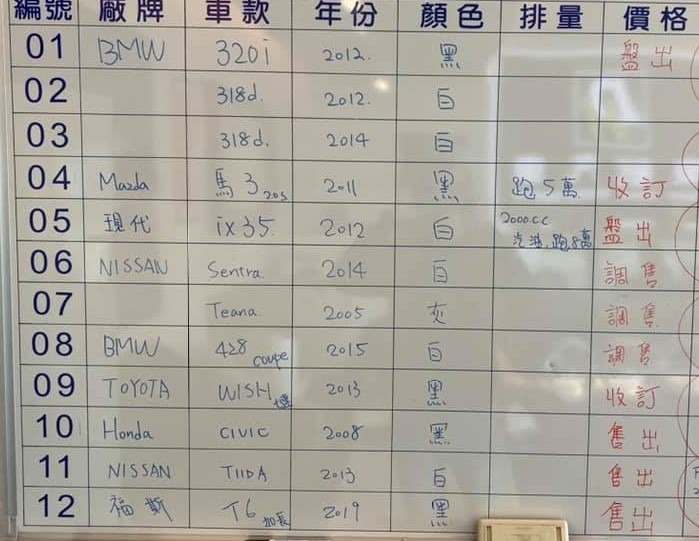 編號 廠牌 車款 年份 顏色 排量 價格
01 BMW 320i 2012. 黑 盤出
02 318d. 2012. 白
03 318d. 2014 白
04 Mazda 馬3 20S 2011 黑 跑5萬. 收訂
05 現代 ix35. 2012 白 2000.c.c 汽油.跑8萬 盤出
06 NISSAN Sentra. 2014 白 調售
07 Teana. 2005 灰 調售
08 BMW 428 coupe 2015 白 調售
09 TOYOTA WISH 2013 黑 收訂
10 Honda CIVIC 2008 黑 售出
11 NISSAN TIIDA 2013 白 售出
12 福斯 T6 加長 2019 黑 售出